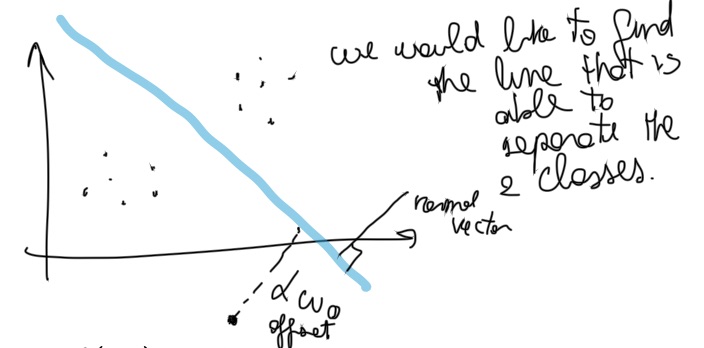 we would like to find
the line that is
able to
separate the
2 classes.
normal
vector
α w₀
offset